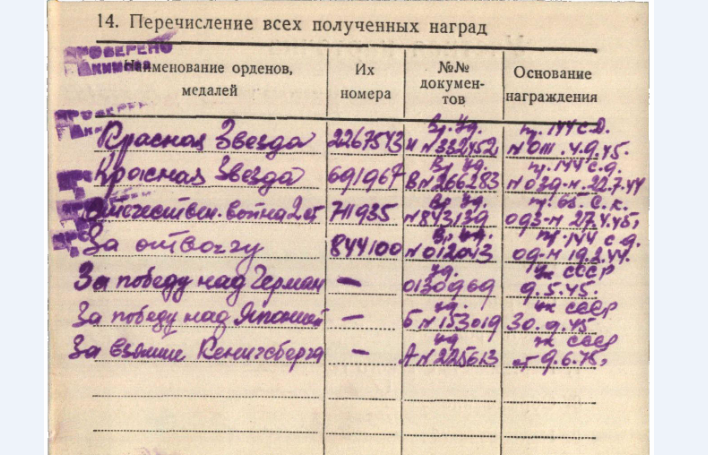 14. Перечисление всех полученных наград
ПРОВЕРЕНО
Наименование орденов, медалей
Их номера
№№ документов
Основание награждения
Красная Звезда 2267543 Вр. уд. И №332452 пр. 144 с.д. №011 4.9.45.
Красная Звезда 691967 Вр. уд. В №266283 пр. 144 с.д. №039-н 22.7.44
Отечествен. война 2 ст 711935 Вр. уд. №843139 пр. 65 с.к. 093-н 27.4.45,
За отвагу 844100 Вр. уд. №012043 пр. 144 с.д. 09-н 19.2.44.
За победу над Герман — уд. 0130969 СССР 9.5.45.
За победу над Японией — уд. Б №153019 СССР 30.9.45
За взятие Кенигсберга — уд. А №225613 СССР от 9.6.45,